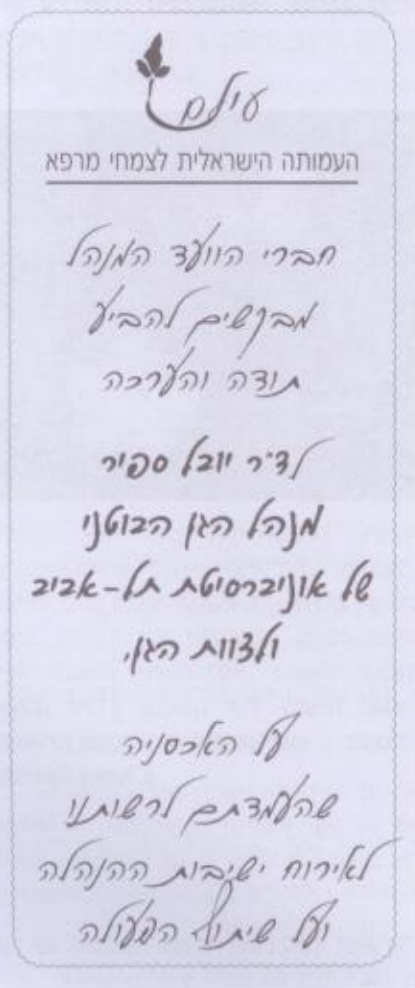 עילם
העמותה הישראלית לצמחי מרפא
חברי הוועד המנהל
מבקשים להביע
תודה והערכה
לד"ר יובל ספיר
מנהל הגן הבוטני
של אוניברסיטת תל-אביב
ולצוות הגן,
על האכסניה
שהעמדתם לרשותנו
לאירוח ישיבות ההנהלה
ועל שיתוף הפעולה